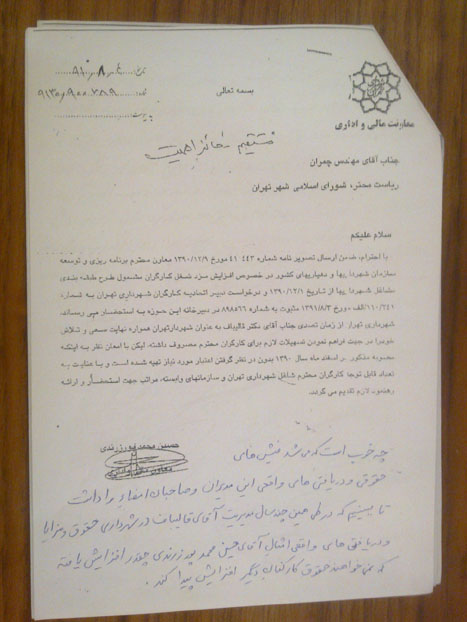 بسمه تعالی
معاونت مالی و اداری
مستقیم حائز اهمیت
جناب آقای مهندس چمران
ریاست محترم شورای اسلامی شهر تهران
سلام علیکم
با احترام، ضمن ارسال تصویر نامه شماره ۴۱۰۴۴۳ مورخ ۱۳۹۰/۱۲/۹ معاون محترم برنامه ریزی و توسعه
سازمان شهرداریها و دهیاریهای کشور در خصوص افزایش مزد شغل کارگران مشمول طرح طبقه بندی
مشاغل شهرداریها از تاریخ ۱۳۹۰/۱۲/۱ و درخواست دبیر اتحادیه کارگران شهرداری تهران به شماره
۱۱۰/۲۴۱/الف مورخ ۱۳۹۱/۸/۳ مثبوت به شماره ۸۹۸۵۶۶ در دبیرخانه این حوزه به استحضار می رساند،
شهرداری تهران از زمان تصدی جناب آقای دکتر قالیباف به عنوان شهردار تهران همواره نهایت سعی و تلاش
خود را در جهت فراهم نمودن تسهیلات لازم برای کارگران محترم مصروف داشته، لیکن با امعان نظر به اینکه
مصوبه مذکور در اسفند ماه سال ۱۳۹۰ بدون در نظر گرفتن اعتبار مورد نیاز تهیه شده است و با عنایت به
تعداد قابل توجه کارگران محترم شاغل شهرداری تهران و سازمانهای وابسته، مراتب جهت استحضار و ارائه
رهنمود لازم تقدیم می گردد.
حسین محمد پورزرندی
معاون مالی و اداری
چه خوب است که می شد فیش های
حقوق و دریافتی های واقعی این مدیران و صاحبان امضاء برا داشت
تا ببینیم که در طی همین چند سال مدیریت آقای قالیباف در شهرداری حقوق و مزایا
و دریافتی های واقعی امثال آقای حسین محمد پورزرندی چقدر افزایش یافته
که نمی خواهند حقوق کارکنان دیگر افزایش پیدا کند.